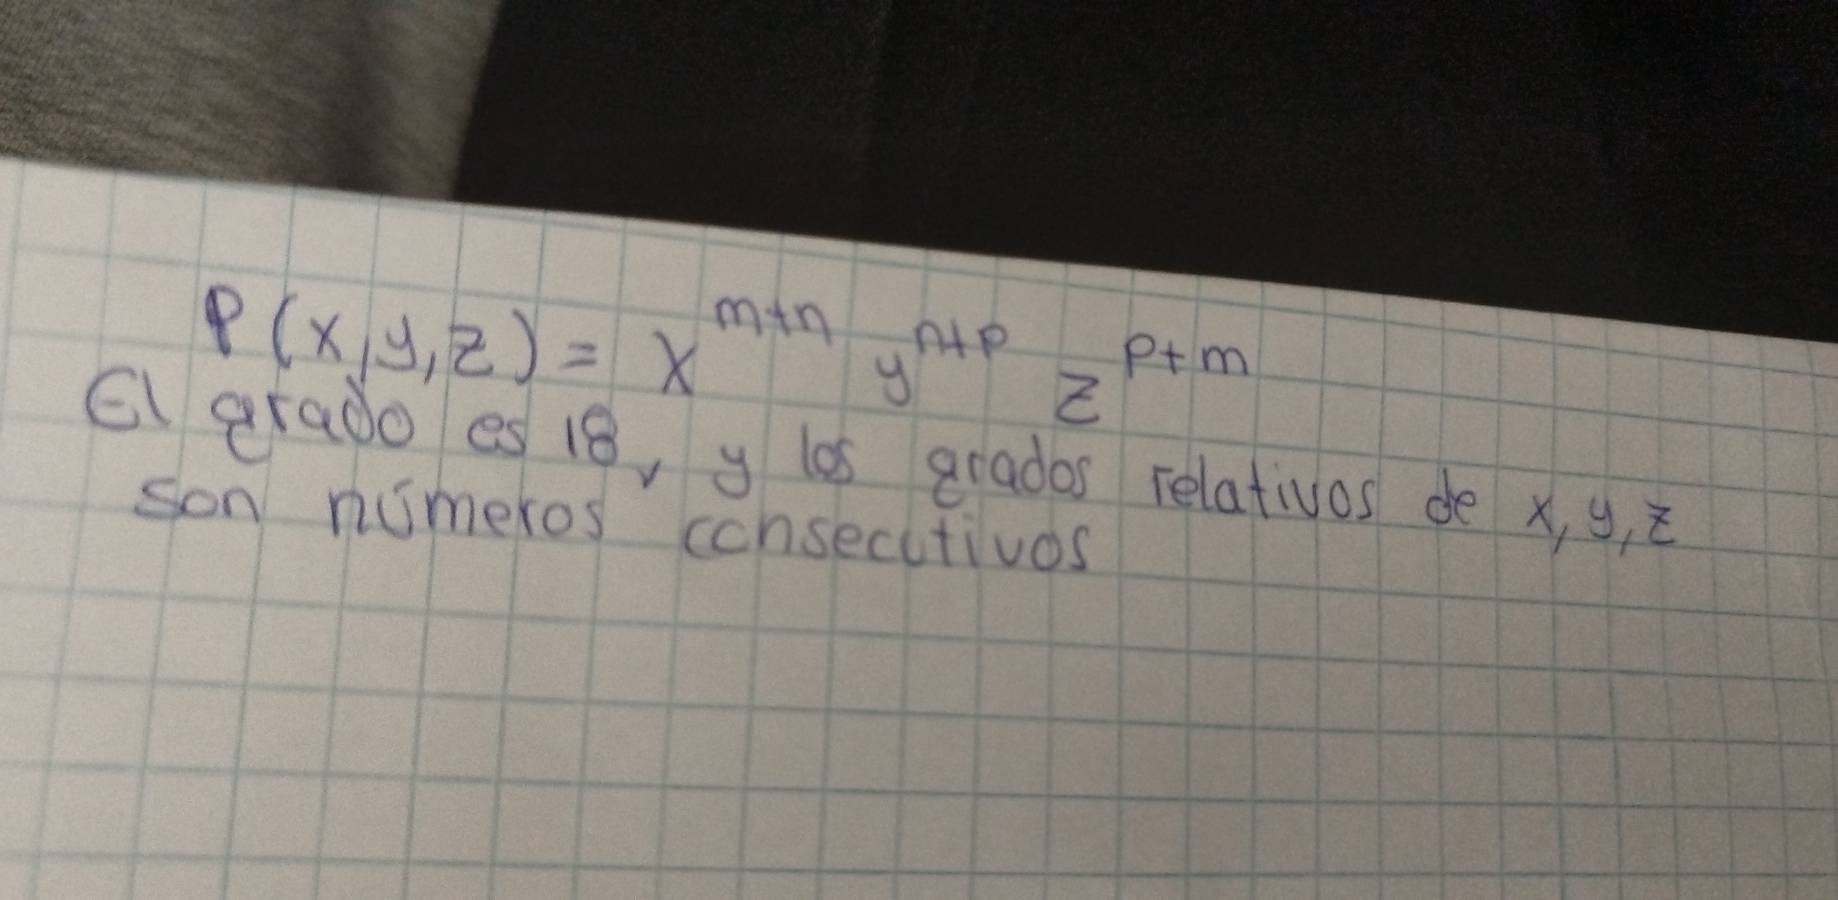 P(x,y,z) = x^{m+n} y^{n+p} z^{p+m}
El grado es 18, y los grados relativos de x, y, z
son números consecutivos